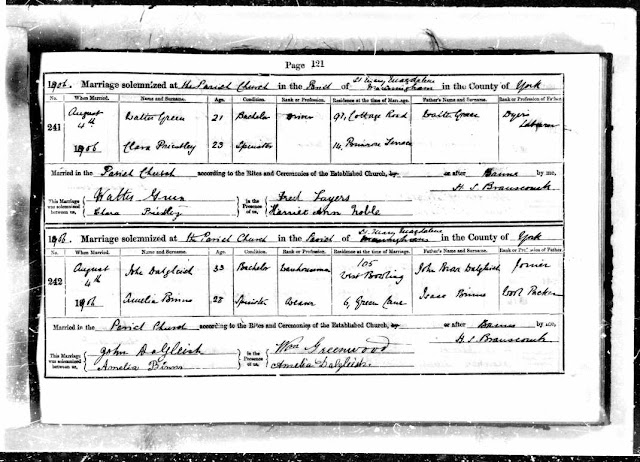 Page 121
1906. Marriage solemnized at the Parish Church in the Parish of St Mary Magdalene Manningham in the County of York
No. When Married. Name and Surname. Age. Condition. Rank or Profession. Residence at the time of Marriage. Father's Name and Surname. Rank or Profession of Father.
241 August 4th 1906 Walter Green 21 Bachelor Driver 91, Cottage Road Walter Green Dyers Labourer
Clara Priestley 23 Spinster 14, Primrose Terrace
Married in the Parish Church according to the Rites and Ceremonies of the Established Church, by or after Banns by me,
H. S. Branscomb
This Marriage was solemnized between us, Walter Green Clara Priestley In the Presence of us, Fred Sayers Harriet Ann Noble
1906. Marriage solemnized at the Parish Church in the Parish of St Mary Magdalene Manningham in the County of York
No. When Married. Name and Surname. Age. Condition. Rank or Profession. Residence at the time of Marriage. Father's Name and Surname. Rank or Profession of Father.
242 August 4th 1906 John Dalgleish 33 Bachelor Warehouseman 105 West Bowling John Dalgleish Joiner
Amelia Binns 28 Spinster Weaver 6, Green Lane Isaac Binns Wool Packer
Married in the Parish Church according to the Rites and Ceremonies of the Established Church, by or after Banns by me,
H. S. Branscomb
This Marriage was solemnized between us, John Dalgleish Amelia Binns In the Presence of us, Wm Greenwood Amelia Dalgleish